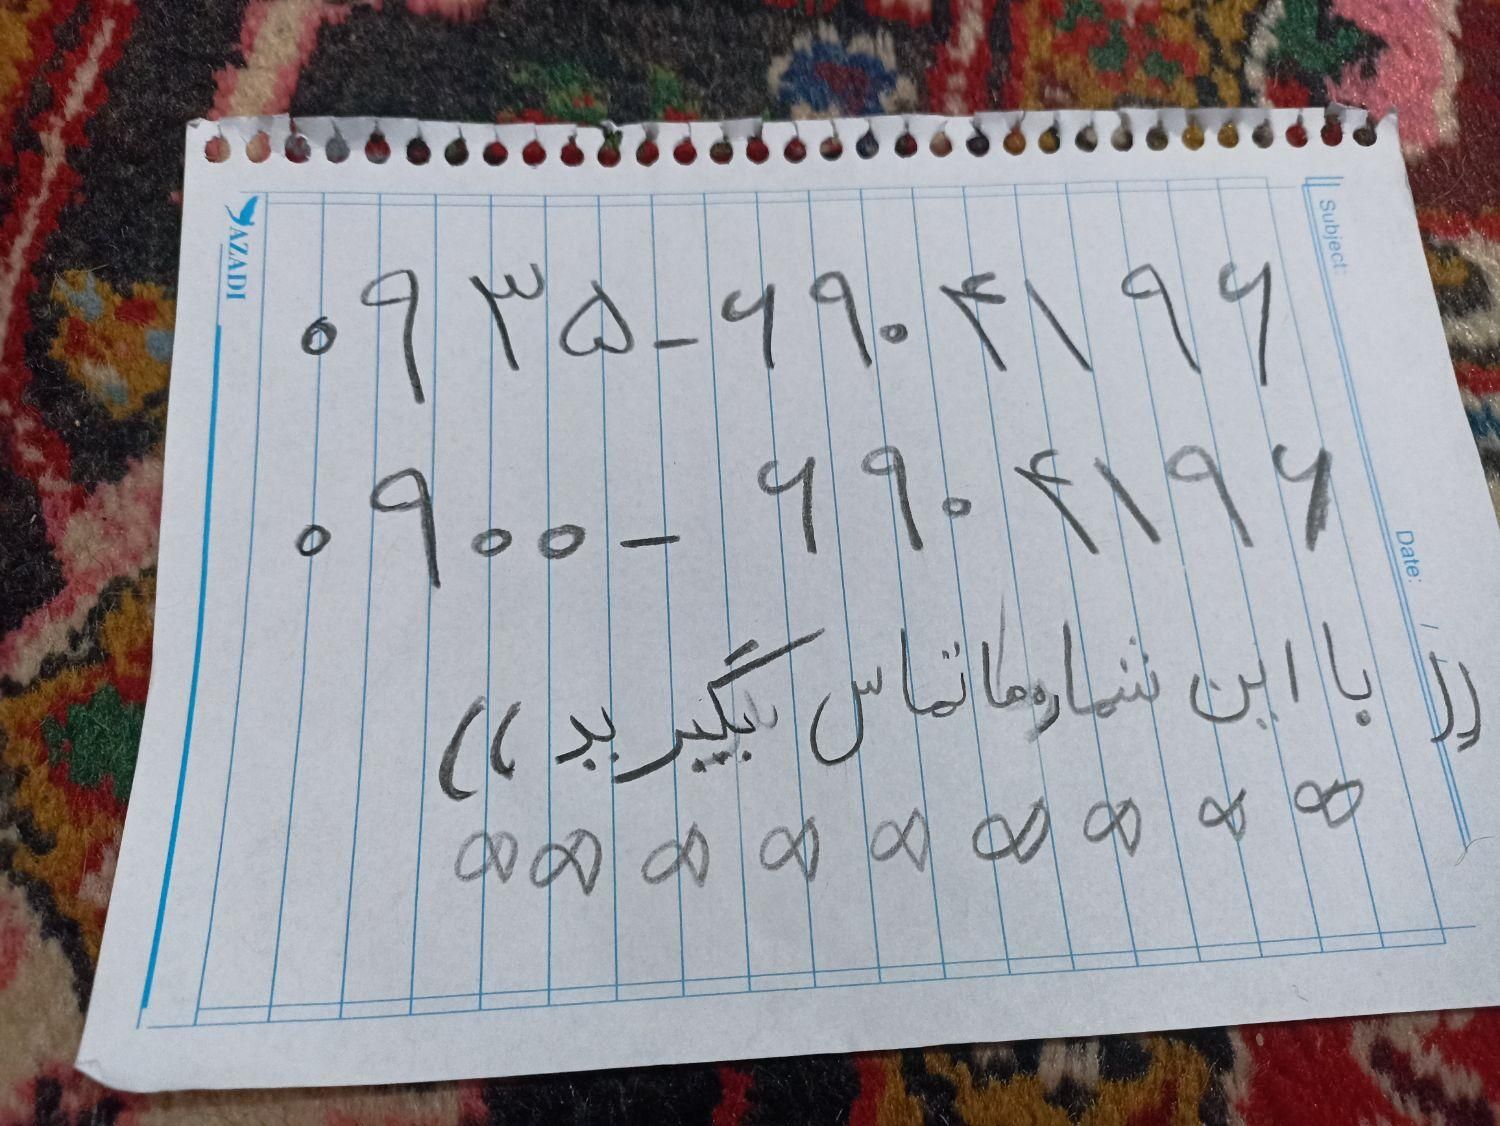 ۰۹۳۵-۶۹۰۴۱۹۶
۰۹۰۰-۶۹۰۴۱۹۶
((با این شماره ها تماس بگیرید))
∞ ∞ ∞ ∞ ∞ ∞ ∞ ∞ ∞
Subject:
Date: /
AZADI